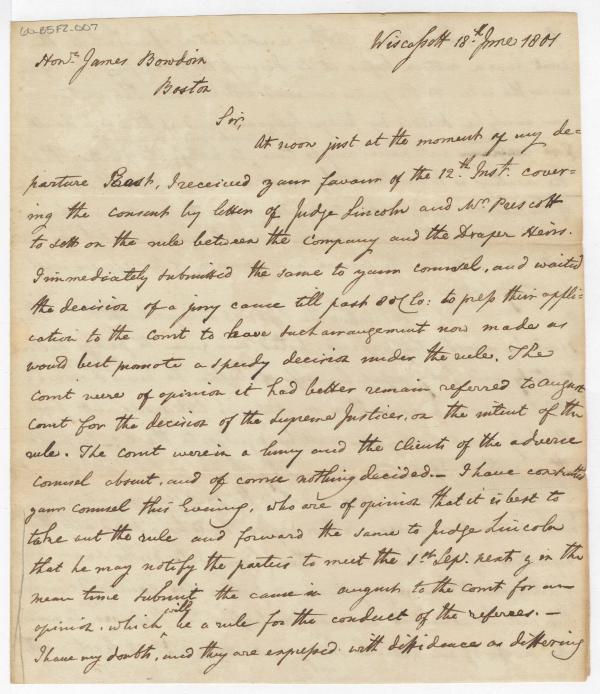 60-85F2-007
Wiscassett 18th June 1801
Honle James Bowdoin
Boston
Sir,
At noon just at the moment of my de=
parture East, I received your favour of the 12th Inst. cover=
ing the consent by letters of Judge Lincoln and Mr. Prescott
to sett on the rule between the Company and the Draper Heirs.
I immediately submitted the same to your counsel, and waited
the decision of a jury cause till past 8 oClo: to press their appli=
cation to the Court to have such arrangement now made as
would best promote a speedy decision under the rule. The
Court were of opinion it had better remain referred to August
Court for the decision of the Supreme Justices, on the intent of the
rule. The Court were in a hurry and the Clients of the adverse
Counsel absent, and of course nothing decided.— I have consulted
your Counsel this Evening, who are of opinion that it is best to
take out the rule and forward the same to Judge Lincoln
that he may notify the parties to meet the 1st Sep. next & in the
mean time submit the cause in august to the Court for an
opinion, which will be a rule for the conduct of the referees.—
I have my doubts, and they are expressed with diffidence as differing